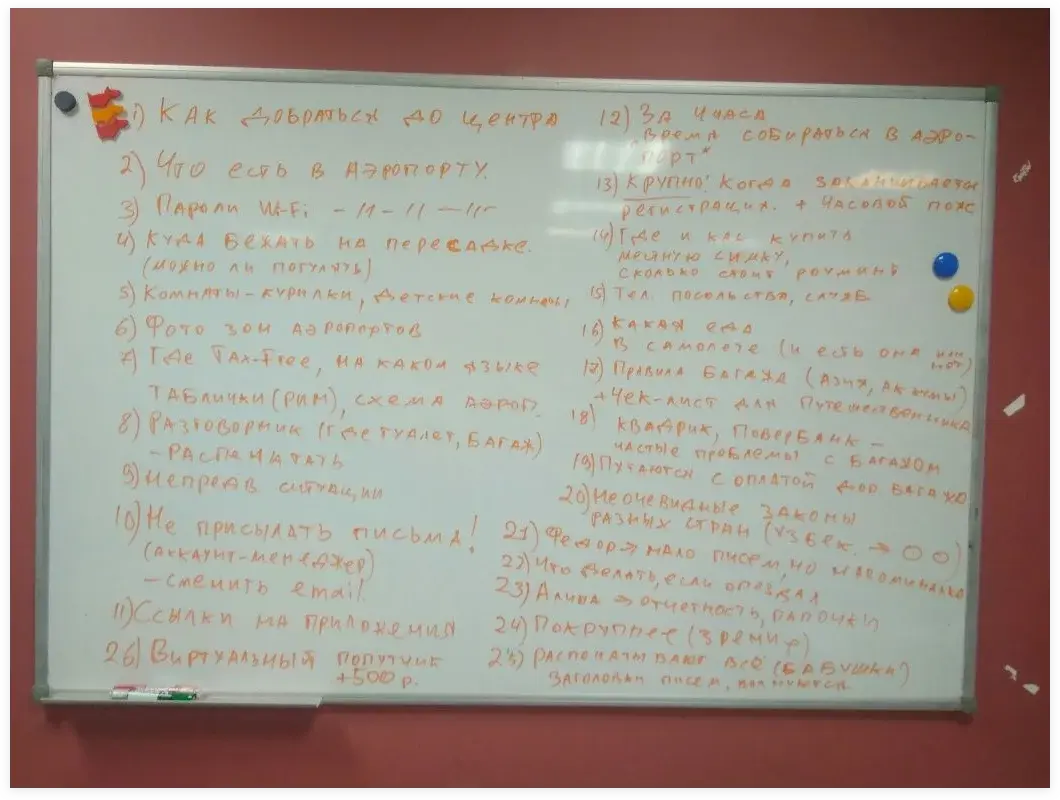 1) Как добраться до центра
2) Что есть в аэропорту.
3) Пароли Wi-Fi - 11 - 11 - 11-
4) Куда бежать на пересадке.
(можно ли погулять)
5) Комнаты-курилки, детские комнаты
6) Фото зон аэропортов
7) Где Tax-Free, на каком языке
таблички (Рим), схема аэроп.
8) Разговорник (где туалет, багаж)
- распечатать
9) Непредв ситуации
10) Не присылать письма!
(аккаунт-менеджер)
- сменить email
11) Ссылки на приложения
26) Виртуальный попутчик
+500 р.
12) За 4 часа
"Время собираться в аэро-
порт"
13) Крупно! Когда заканчивается
регистрация. + часовой пояс
14) Где и как купить
местную симку,
сколько стоит роуминг
15) Тел. посольства, служб
16) Какая еда
в самолете (и есть она или
нет)
17) Правила багажа (Азия,
+ Чек-лист для путешественника
18) Квадрик, повербанк -
частые проблемы с багажом
19) Путаются с оплатой доп багажа
20) Неочевидные законы
разных стран (Узбек. → OO)
21) Федор → мало писем, но напоминалка
22) Что делать, если опоздал
23) Алина → отчетность, папочки
24) Покрупнее (зрение)
25) Распечатывают всё (бабушки)
Заголовки писем,